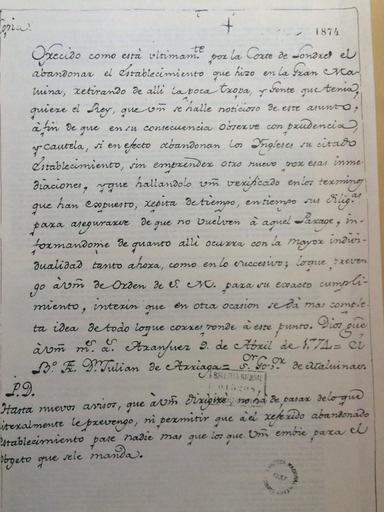 Copia.
1874
Ofrecido como està ultimam.te por la Corte de Londres el
abandonar el establecimiento que hizo en la Gran Ma-
luina, retirando de alli la poca tropa, y Gente que tenia,
quiere el Rey, que Vm se halle noticioso de este asunto,
à fin de que en su consecuencia observe con prudencia,
y cautela, si en efecto abandonan los Ingleses su citado
establecimiento, sin emprender otro nuevo por esas inme-
diaciones, y que hallandolo Vm verificado en los terminos
que han expuesto, repita de tiempo, en tiempo sus
para asegurarse de que no vuelven à aquel Parage, in-
formandome de quanto alli ocurra con la mayor indivi-
dualidad tanto ahora, como en lo succesivo; lo que preven-
go à Vm de Orden de S. M. para su exacto cumpli-
miento, interin que en otra ocasion se dà mas comple-
ta idea de todo lo que corresponde à este punto. Dios gue
à Vm m.s a.s Aranjuez 9. de Abril de 1774 = el
B.o F. D.n Julian de Arriaga = S.or Gov.or de Maluinas
P.D.
Hasta nuevos avisos, que à Vm dirigirè no hà de pasar de lo que
literalmente le prevengo, ni permitir que à el referido abandonado
establecimiento pase nadie mas que los que Vm embie para el
objeto que se le manda.